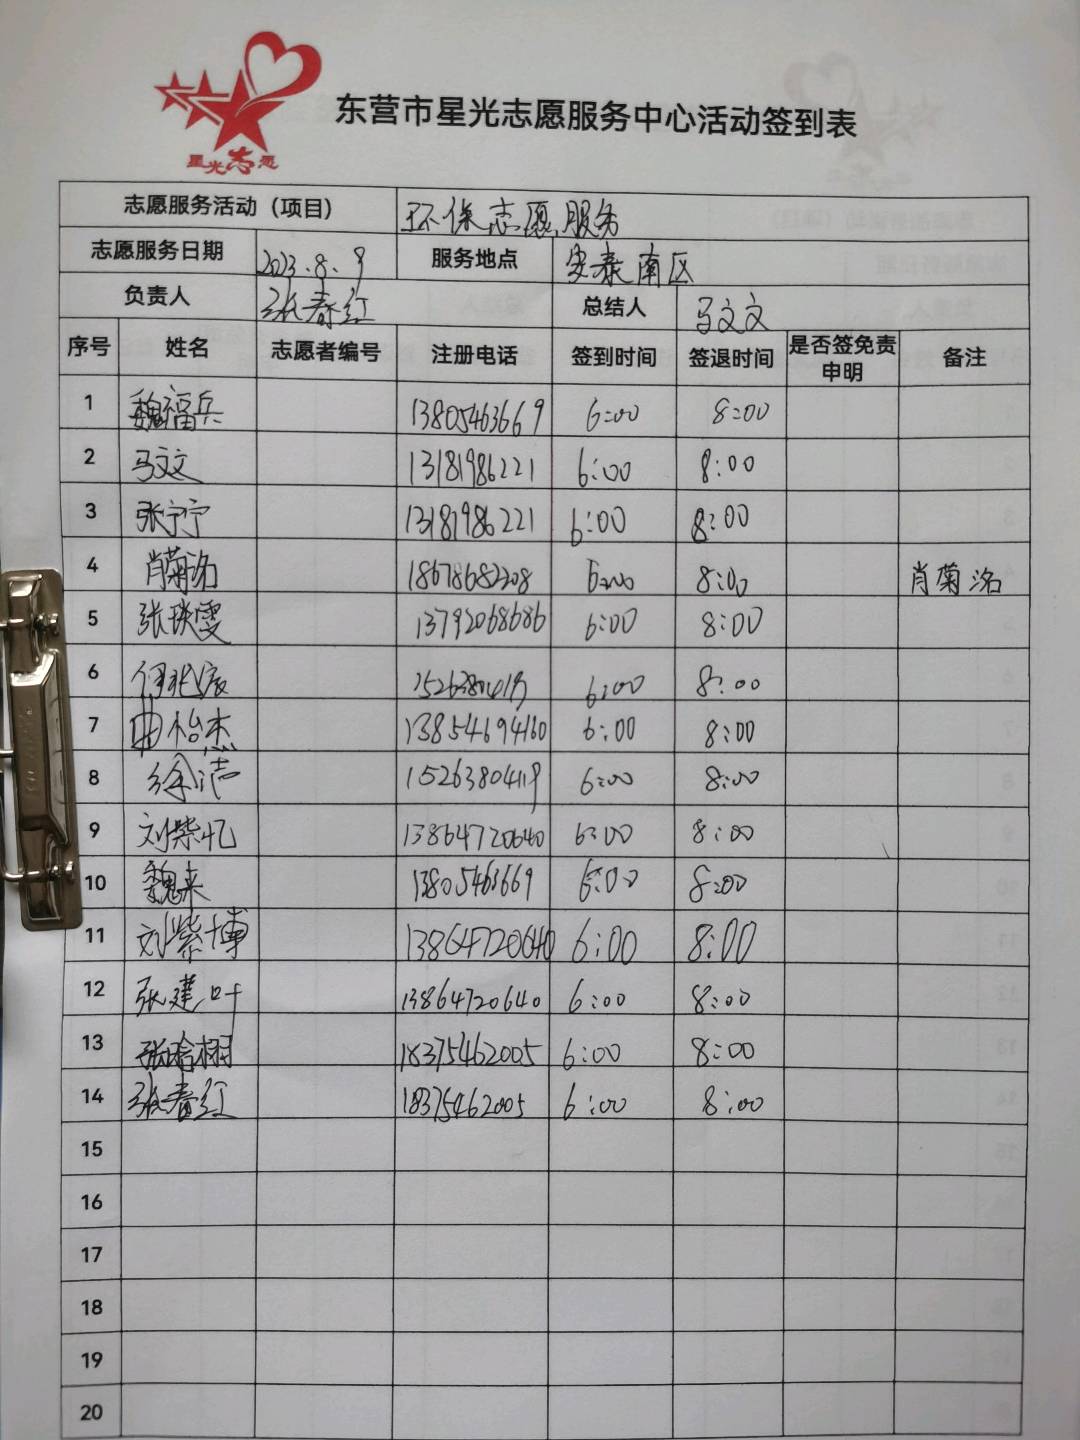 星光志愿
东营市星光志愿服务中心活动签到表
志愿服务活动（项目） 环保志愿服务
志愿服务日期 2023.8.9 服务地点 安泰南区
负责人 张春红 总结人 马文文
序号 姓名 志愿者编号 注册电话 签到时间 签退时间 是否签免责申明 备注
1 魏福兵 13805463669 6:00 8:00
2 马文文 13181986221 6:00 8:00
3 张宁宁 13181986221 6:00 8:00
4 肖菊洺 18678682208 6:00 8:00 肖菊洺
5 张瑛雯 13792068686 6:00 8:00
6 6:00 8:00
7 曲怡杰 13854694160 6:00 8:00
8 徐浩 15263804119 6:00 8:00
9 刘紫忆 13864720640 6:00 8:00
10 魏来 13805463669 6:00 8:00
11 刘紫博 13864720640 6:00 8:00
12 张建叶 13864720640 6:00 8:00
13 张晗栩 18375462005 6:00 8:00
14 张春红 18375462005 6:00 8:00
15
16
17
18
19
20